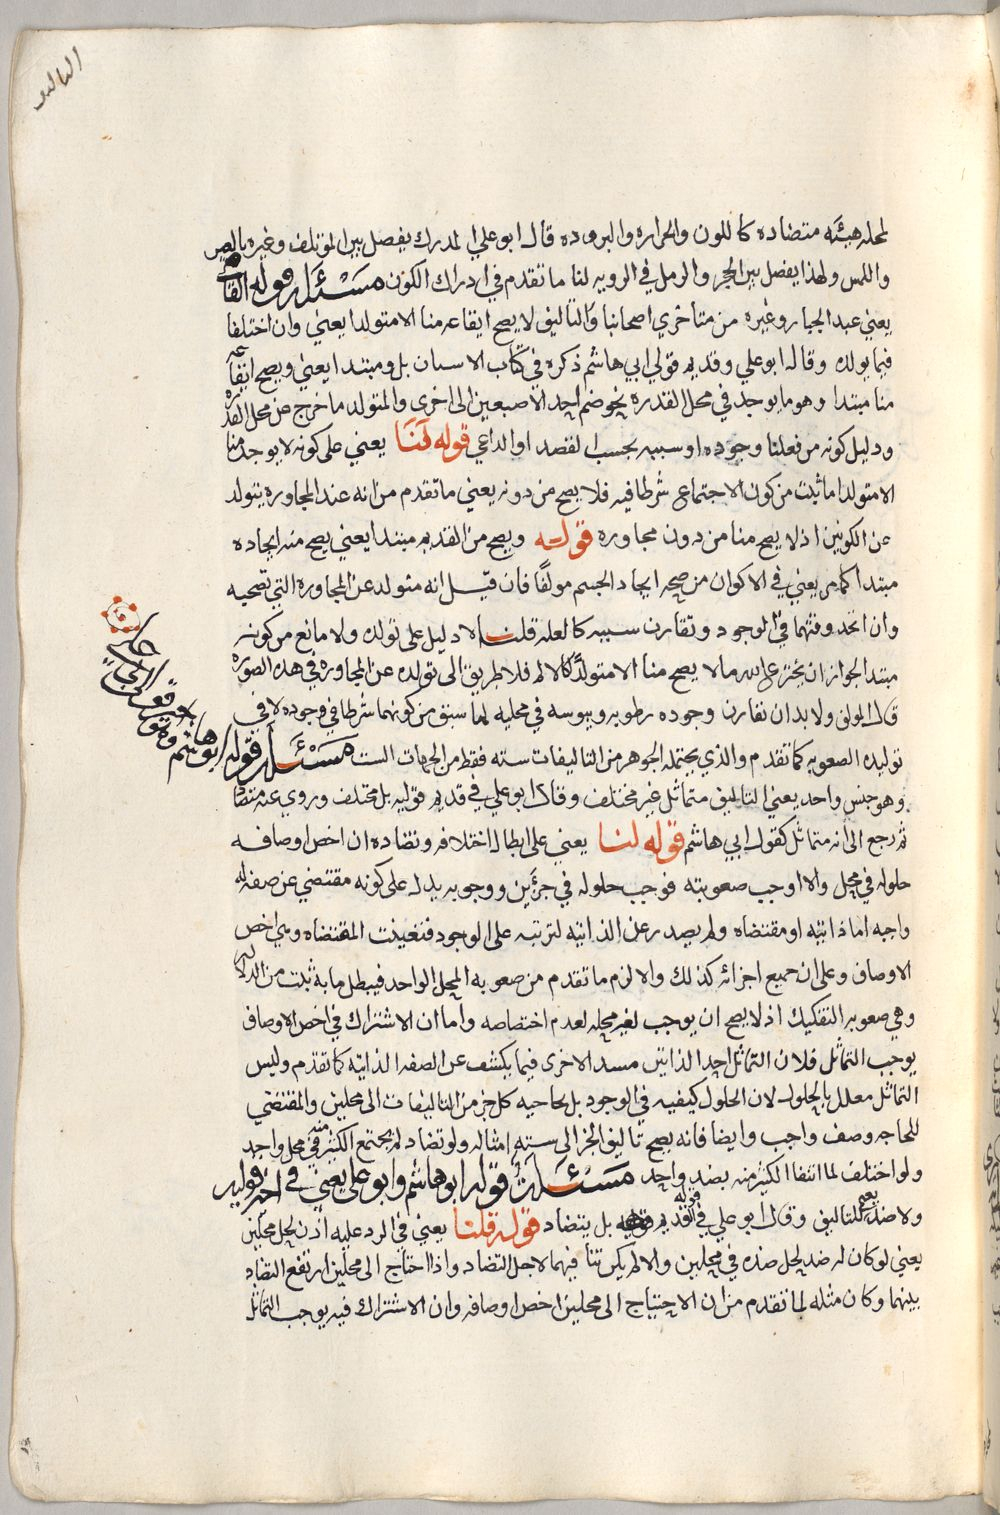 التاليف
لمحله هيئه متضاده كاللون والحراره والبروده قال ابوعلي المدرك يفصل بين المؤتلف وغيره بالبصر
واللمس ولهذا يفصل بين الحجر والرمل في الرويه لنا ما تقدم في ادراك الكون مسئله قوله القاضي
يعني عبد الجبار وغيره من متاخري اصحابنا والتاليف لا يصح ايقاعه منا الا متولدا يعني وان اختلفا
فيما يولده وقال ابوعلي وقديم قولي ابي هاشم ذكره في كتاب الانسان بل ومبتدا يعني ويصح ايقاعه
منا مبتدا وهو ما يوجد في محل القدره نحو ضم احد الاصبعين الى اخرى والمتولد ما خرج عن محل القدره
ودليل كونه من فعلنا وجوده او سببه بحسب القصد او الداعي قوله لنا يعني على كونه لا يوجد منا
الا متولدا ما ثبت من كون الاجتماع شرطا فيه فلا يصح من دونه يعني ما تقدم من انه عند المجاوره يتولد
عن الكونين اذ لا يصح منا من دون مجاوره قوله ويصح من القديم مبتدا يعني يصح منه ايجاده
مبتدا كما مر يعني في الاكوان من صحه ايجاد الجسم مولفا فان قيل انه متولد عن المجاوره التي تصحبه
وان اتحد وقتهما في الوجود وتقارن سببه كالعله قلنا لا دليل على تولده ولا مانع من كونه
مبتدا لجواز ان يخترع الله ما لا يصح منا الا متولدا كالالم فلا طريق الى تولده عن المجاوره في هذه الصوره
قال المولف ولا بد ان تقارن وجوده رطوبه ويبوسه في محليه لما سبق من كونهما شرطا في وجوده لا في
توليده الصعوبه كما تقدم والذي يحتمله الجوهر من التاليفات سته فقط من الجهات الست مسئله قوله ابوهاشم
وهو جنس واحد يعني التاليف متماثل غير مختلف وقال ابوعلي في قديم قوليه بل مختلف وروي عنه متضاد
ثم رجع الى انه متماثل كقول ابي هاشم قوله لنا يعني على ابطال اختلافه وتضاده ان اخص اوصافه
حلوله في محل والا اوجب صعوبته فوجب حلوله في جزئين ووجوبه يدل على كونه مقتضي عن صفه له
واجبه اما ذاتيه او مقتضاه ولم يصدر عن الذاتيه لترتبه على الوجود فتعينت المقتضاه وهي اخص
الاوصاف وعلى ان جميع اجزائه كذلك والا لزم ما تقدم من صعوبه المحل الواحد فيبطل ما به ثبت من الدلاله
وهي صعوبه التفكيك اذ لا يصح ان يوجب لغير محله لعدم اختصاصه واما ان الاشتراك في اخص الاوصاف
يوجب التماثل فلان التماثل احد الذاتين مسد الاخرى فيما يكشف عن الصفه الذاتيه كما تقدم وليس
التماثل معلل بالحلول لان الحلول كيفيه في الوجود بل بحاجه كل جزء من التاليفات الى محلين والمقتضي
للحاجه وصف واجب وايضا فانه يصح تاليف الجزء الى سته امثاله ولو تضاد لم يجتمع الكثير منه في محل واحد
ولو اختلف لما انتفا الكثير منه بضد واحد مسئله قوله ابوهاشم وابوعلي يعني في اخير قوليه
ولا ضد للتاليف وقال ابوعلي في قديم قوليه بل يتضاد قوله قلنا يعني في الرد عليه اذن لحل محلين
يعني لو كان له ضد لحل ضده في محلين والا لم يكن تنا فيهما لاجل التضاد واذا احتاج الى محلين ارتفع التضاد
بينهما وكان مثله لما تقدم من ان الاحتياج الى محلين اخص اوصافه وان الاشتراك فيه يوجب التماثل